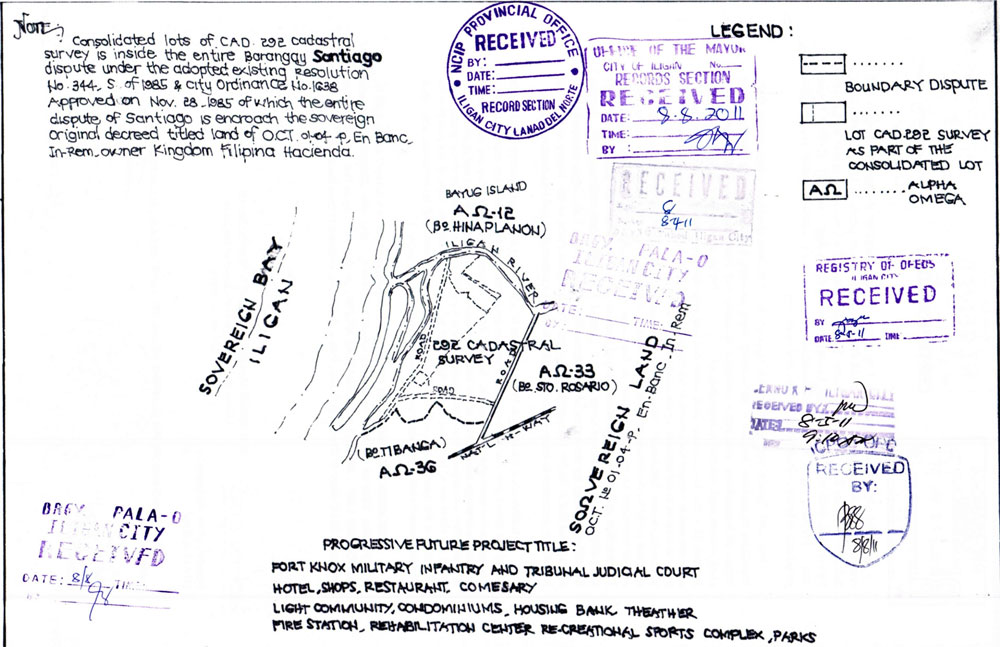 Note:
Consolidated lots of CAD. 292 cadastral
survey is inside the entire Barangay Santiago
dispute under the adopted existing Resolution
No. 344. S. of 1985 & City Ordinance No. 1638
Approved on Nov. 28. 1985 of which the entire
dispute of Santiago is encroach the sovereign
Original decreed titled land of O.C.T. 01-04-p. En Banc_
In-Rem_owner Kingdom Filipina Hacienda.
NCIP PROVINCIAL OFFICE
RECEIVED
BY:
DATE:
TIME:
RECORD SECTION
ILIGAN CITY LANAO DEL NORTE
OFFICE OF THE MAYOR
CITY OF ILIGAN No.
RECORDS SECTION
RECEIVED
DATE: 8.8.2011
TIME:
BY :
LEGEND :
BOUNDARY DISPUTE
LOT CAD.292 SURVEY
AS PART OF THE
CONSOLIDATED LOT
ΑΩ
ALPHA
OMEGA
RECEIVED
8-8-11
Iligan City
BRGY. PALA-O
ILIGAN CITY
RECEIVED
DATE: TIME:
BY:
REGISTRY OF DEEDS
ILIGAN CITY
RECEIVED
BY
DATE 8-8-11 TIME
BAYUG ISLAND
ΑΩ-12
(Bo. HINAPLANON)
ILIGAN RIVER
SOVEREIGN BAY
ILIGAN
ROAD
292 CADASTRAL
SURVEY
ROAD
ROAD
ΑΩ-33
(Bo. STO. ROSARIO)
NAT'L-H-WAY
(Bo. TIBANGA)
ΑΩ-36
SOΩVEREIGN LAND
O.C.T. No 01-04-P. En-Banc. In Rem
RECEIVED BY
DATE: 8-8-11
RECEIVED
BY:
8/8/11
BRGY. PALA-O
ILIGAN CITY
RECEIVED
DATE: 8/8 TIME:
PROGRESSIVE FUTURE PROJECT TITLE :
FORT KNOX MILITARY INFANTRY AND TRIBUNAL JUDICIAL COURT
HOTEL, SHOPS, RESTAURANT, COMESARY
LIGHT COMMUNITY, CONDOMINIUMS, HOUSING BANK THEATHER
FIRE STATION, REHABILITATION CENTER RE-CREATIONAL SPORTS COMPLEX, PARKS